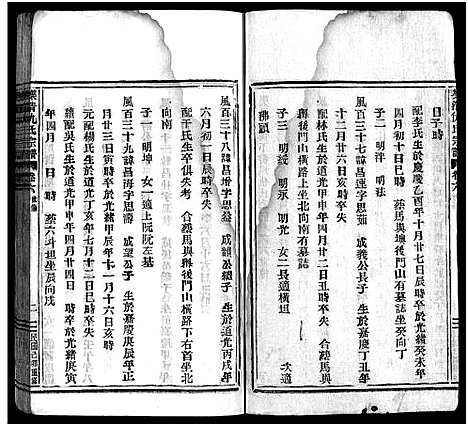 日子時
配李氏生於慶慶乙酉年十月廿七日辰時卒於光緒癸未年
四月初十日辰時 葬馬與壇後門山有墓誌
子二 明坤 明法
風百三十七諱昌連字思茹 成義公長子 生於嘉慶丁丑年
六月廿三日寅時卒失
配林氏生於道光甲申年四月廿二日丑時卒失 合葬馬與
後門山橫路下左首坐北向南有墓誌
子三 明綬 明永 明光 女二長適橫垣 次適
佛頭
風百三十八諱昌增字思益 成韻公繼子 生於道光丙戌年
六月初一日辰時卒失
配于氏生卒俱失考 合葬馬與縣後門山橫路下右首坐北
向南
子一 明坤 女一適上阮阮左基
風百三十九諱昌海字思濤 成望公子 生於嘉慶庚辰年正
月廿三日辰時卒於光緒甲申年十一月十六日亥時
元配楊氏生於道光丁亥年七月十二日巳時卒失
繼吳氏生於道光甲申年四月廿四日 時卒於光緒庚寅
年四月 日 時 葬六斗坦坐辰向戌